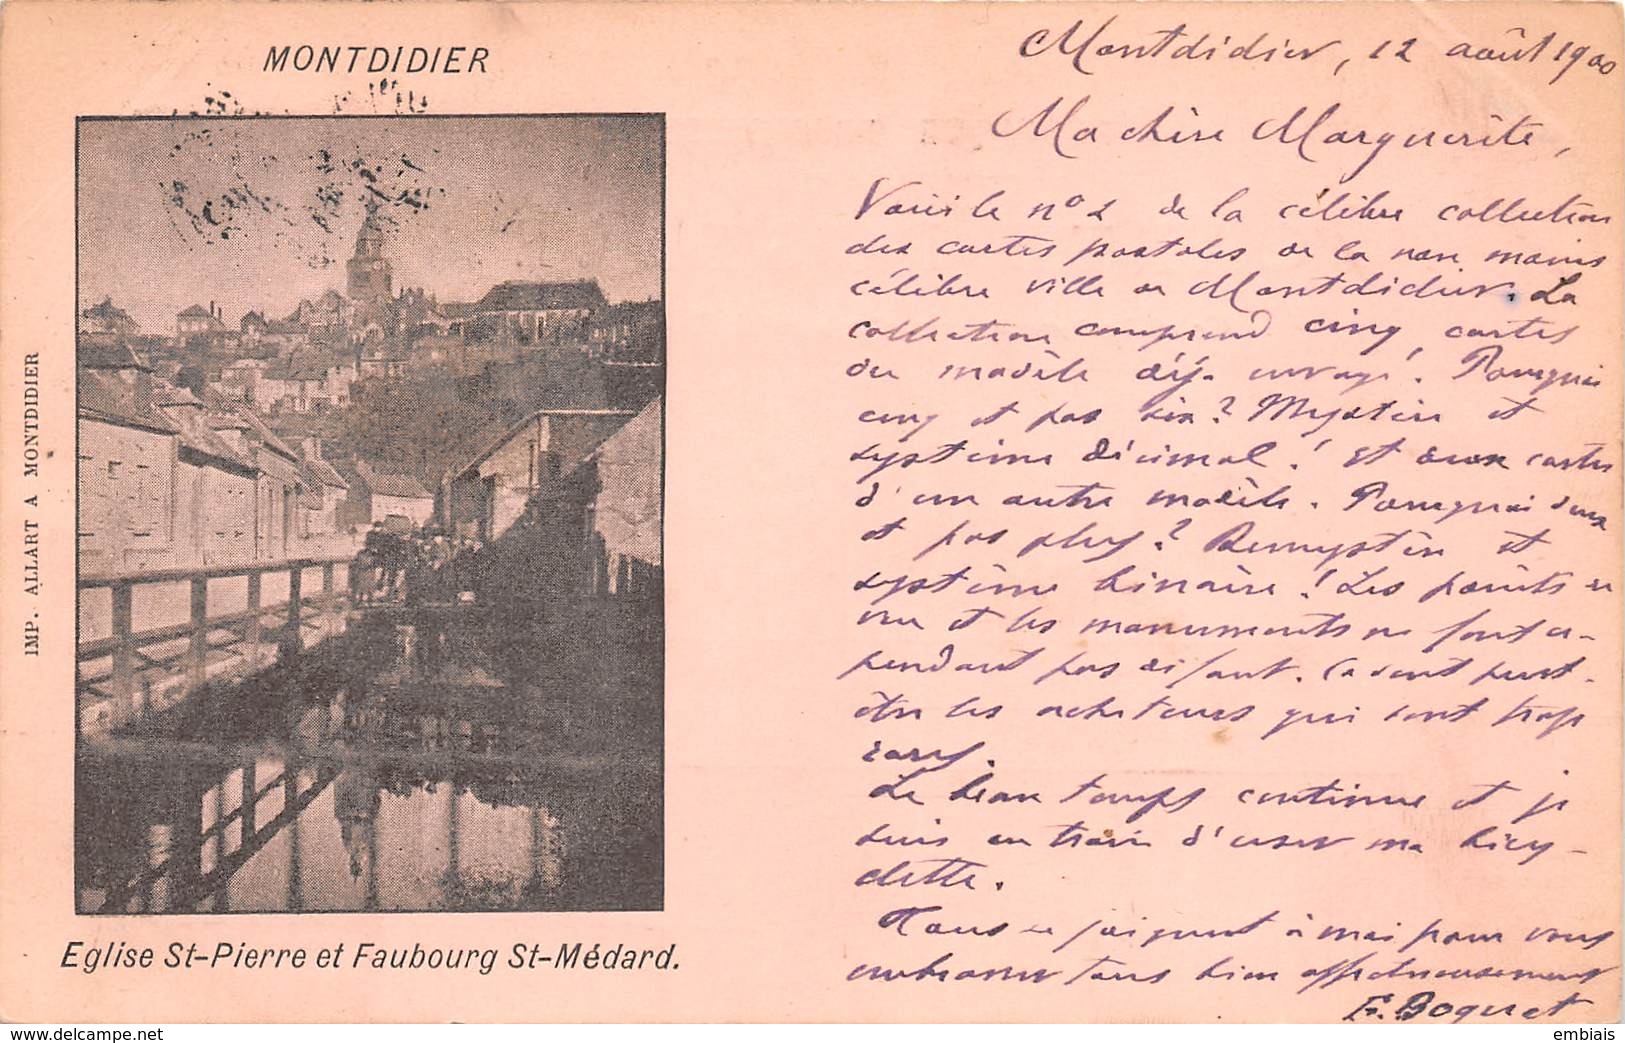 MONTDIDIER
IMP. ALLART A MONTDIDIER
Eglise St-Pierre et Faubourg St-Médard.
Montdidier, 12 août 1900
Ma chère Marguerite,
Voici le n° 2 de la célèbre collection
des cartes postales de la non moins
célèbre ville de Montdidier. La
collection comprend cinq cartes
du modèle déjà envoyé. Pourquoi
cinq et pas six? Mystère et
système décimal! et deux cartes
d'un autre modèle. Pourquoi deux
et pas plus? Remystère et
système binaire! Les points de
vue et les monuments ne font ce-
pendant pas défaut. Ce sont peut-
être les acheteurs qui sont trop
rares.
Le beau temps continue et je
suis en train d'user ma bicy-
clette.
Tous se joignent à moi pour vous
embrasser tous bien affectueusement
E. Boquet
embiais